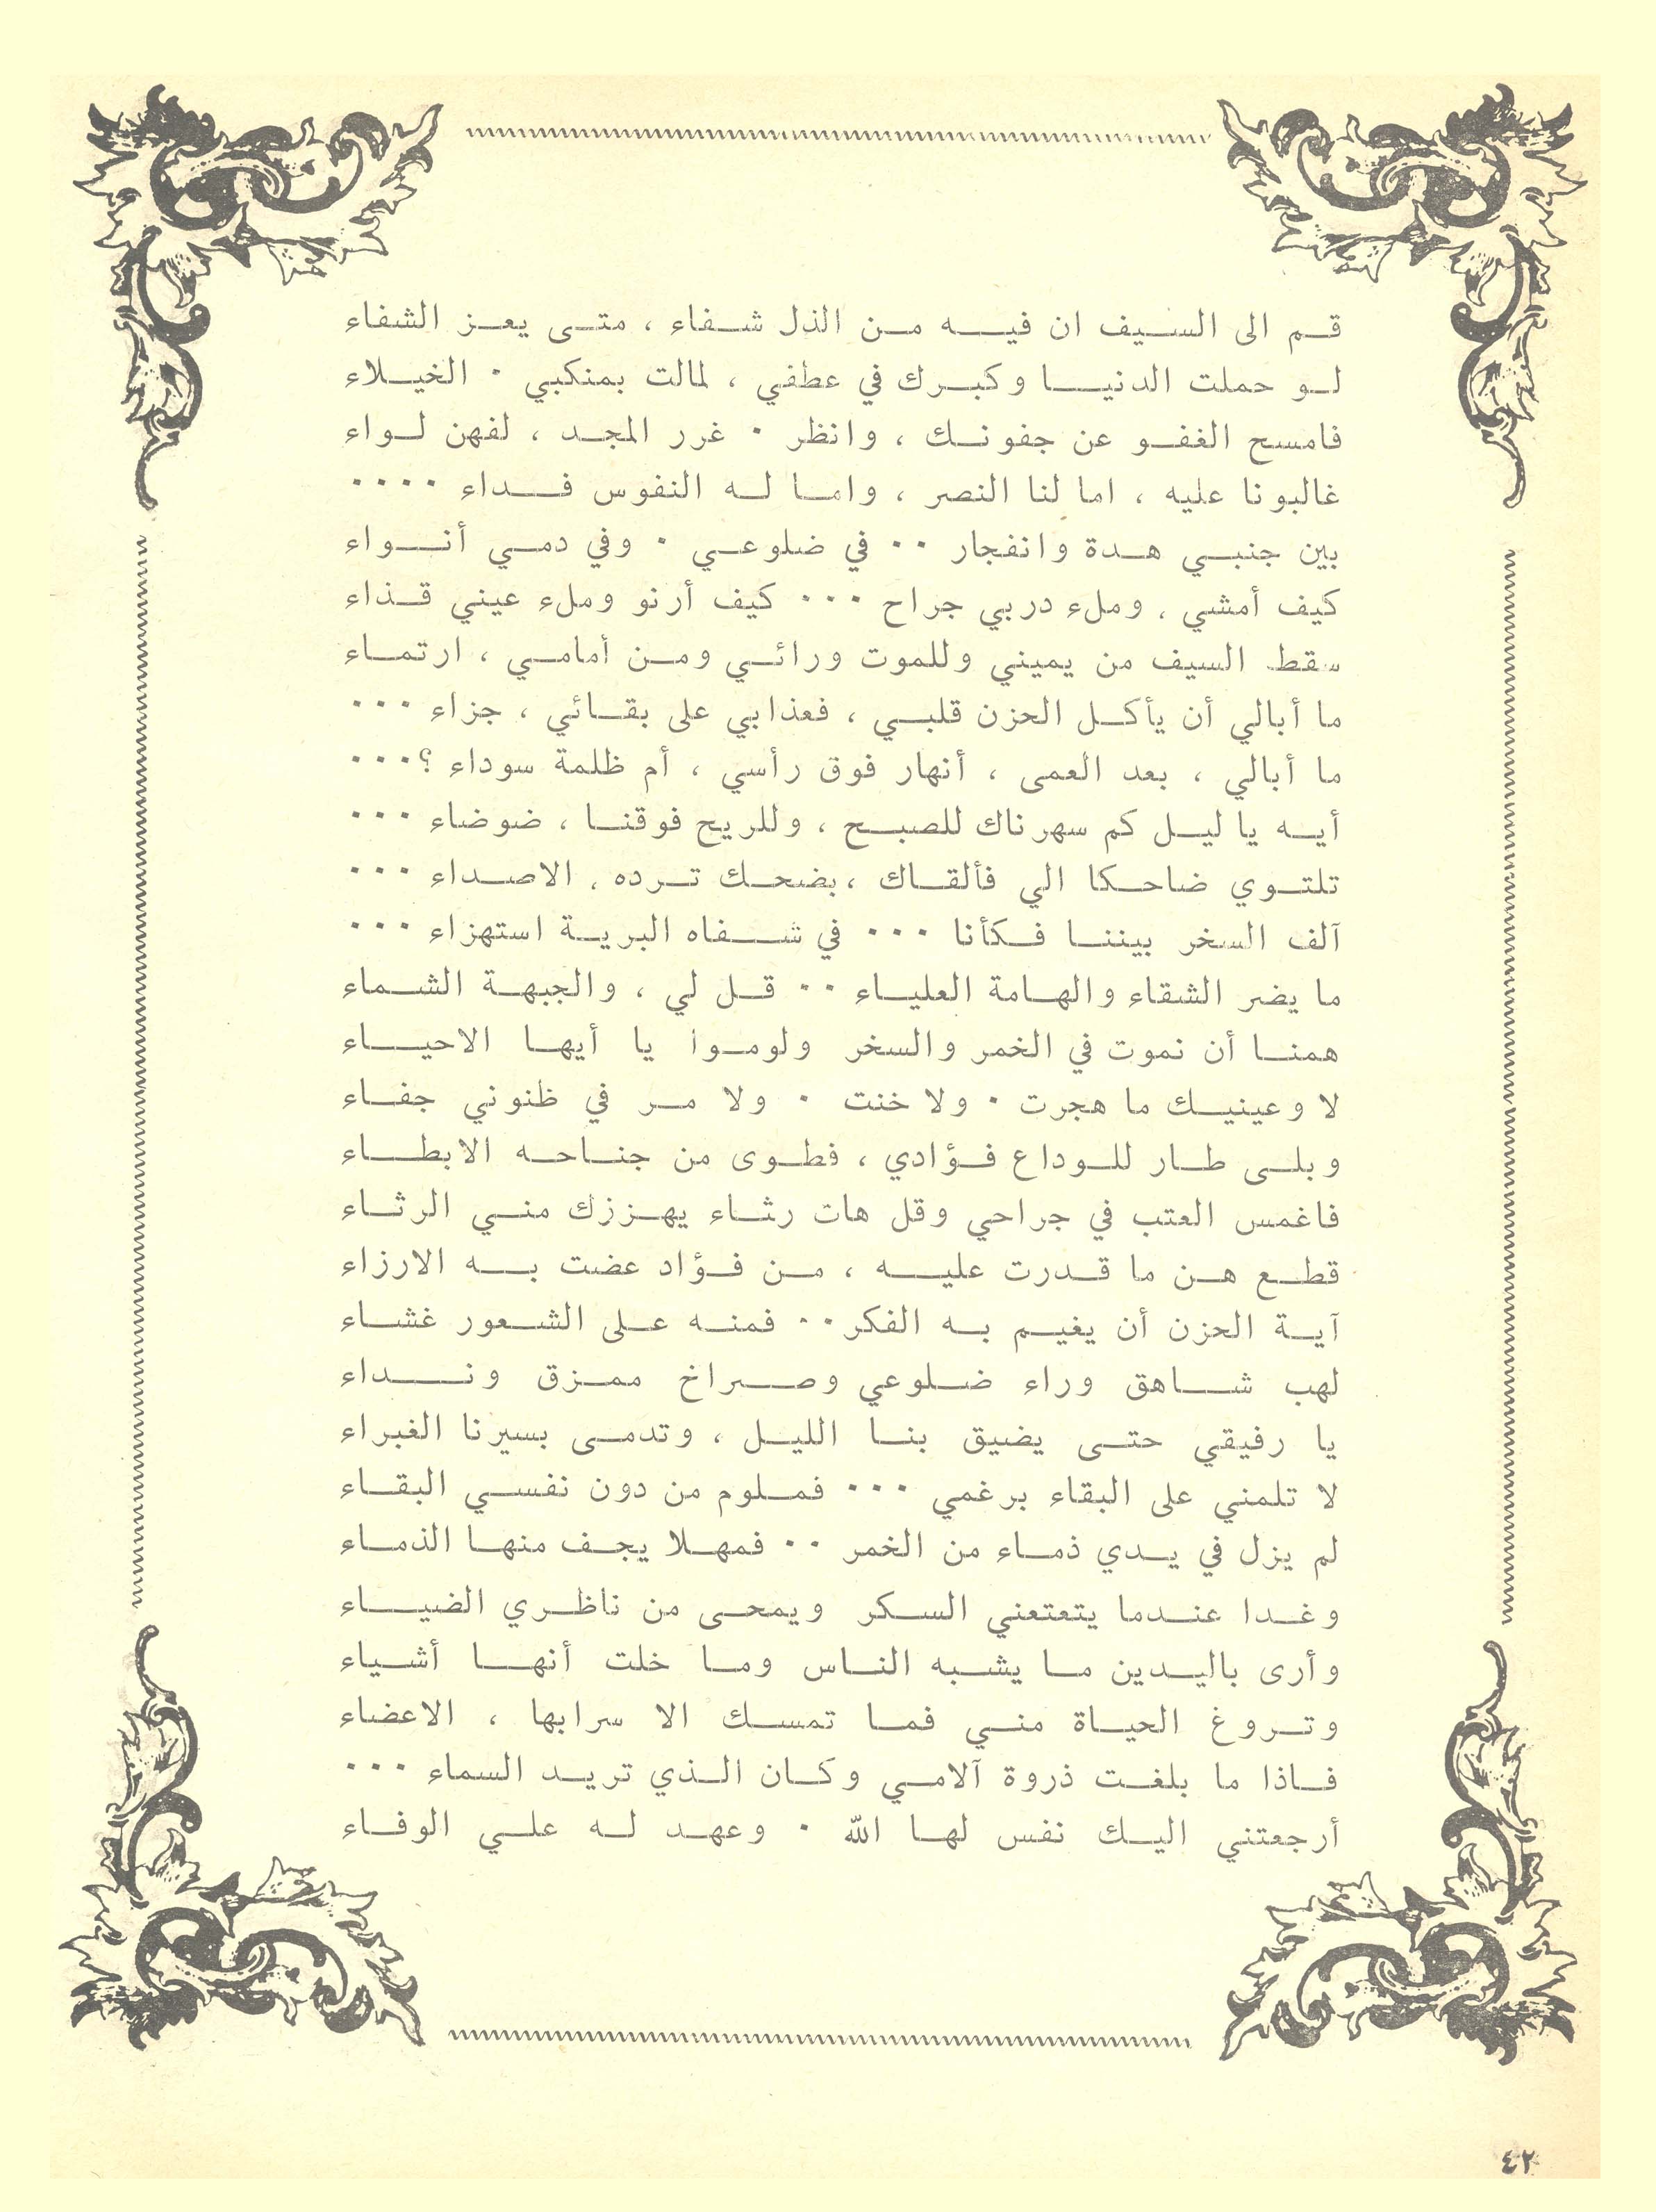 قم الى السيف ان فيه من الذل شفاء ، متى يعز الشفاء
لو حملت الدنيا وكبرك في عطفي ، لمالت بمنكبي . الخيلاء
فامسح الغفو عن جفونك ، وانظر . غرر المجد ، لفهن لواء
غالبونا عليه ، اما لنا النصر ، واما له النفوس فداء ....
بين جنبي هدة وانفجار .. في ضلوعي . وفي دمي أنواء
كيف أمشي ، وملء دربي جراح ... كيف أرنو وملء عيني قذاء
سقط السيف من يميني وللموت ورائي ومن أمامي ، ارتماء
ما أبالي أن يأكل الحزن قلبي ، فعذابي على بقائي ، جزاء ...
ما أبالي ، بعد العمى ، أنهار فوق رأسي ، أم ظلمة سوداء ؟...
أيه يا ليل كم سهرناك للصبح ، وللريح فوقنا ، ضوضاء ...
تلتوي ضاحكا الي فألقاك ، بضحك ترده ، الاصداء ...
آلف السخر بيننا فكأنا ... في شفاه البرية استهزاء ...
ما يضر الشقاء والهامة العلياء .. قل لي ، والجبهة الشماء
همنا أن نموت في الخمر والسخر ولوموا يا أيها الاحياء
لا وعينيك ما هجرت . ولا خنت . ولا مر في ظنوني جفاء
وبلى طار للوداع فؤادي ، فطوى من جناحه الابطاء
فاغمس العتب في جراحي وقل هات رثاء يهززك مني الرثاء
قطع هن ما قدرت عليه ، من فؤاد عضت به الارزاء
آية الحزن أن يغيم به الفكر.. فمنه على الشعور غشاء
لهب شاهق وراء ضلوعي وصراخ ممزق ونداء
يا رفيقي حتى يضيق بنا الليل ، وتدمى بسيرنا الغبراء
لا تلمني على البقاء برغمي ... فملوم من دون نفسي البقاء
لم يزل في يدي ذماء من الخمر .. فمهلا يجف منها الذماء
وغدا عندما يتعتعني السكر ويمحى من ناظري الضياء
وأرى باليدين ما يشبه الناس وما خلت أنها أشياء
وتروغ الحياة مني فما تمسك الا سرابها ، الاعضاء
فاذا ما بلغت ذروة آلامي وكان الذي تريد السماء ...
أرجعتني اليك نفس لها الله . وعهد له علي الوفاء
٤٢